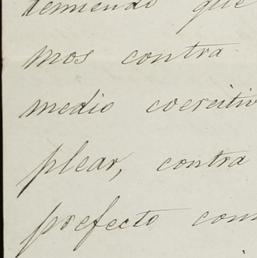 temiendo que
mos contra
medio coercitiv
plear, contra
prefecto com